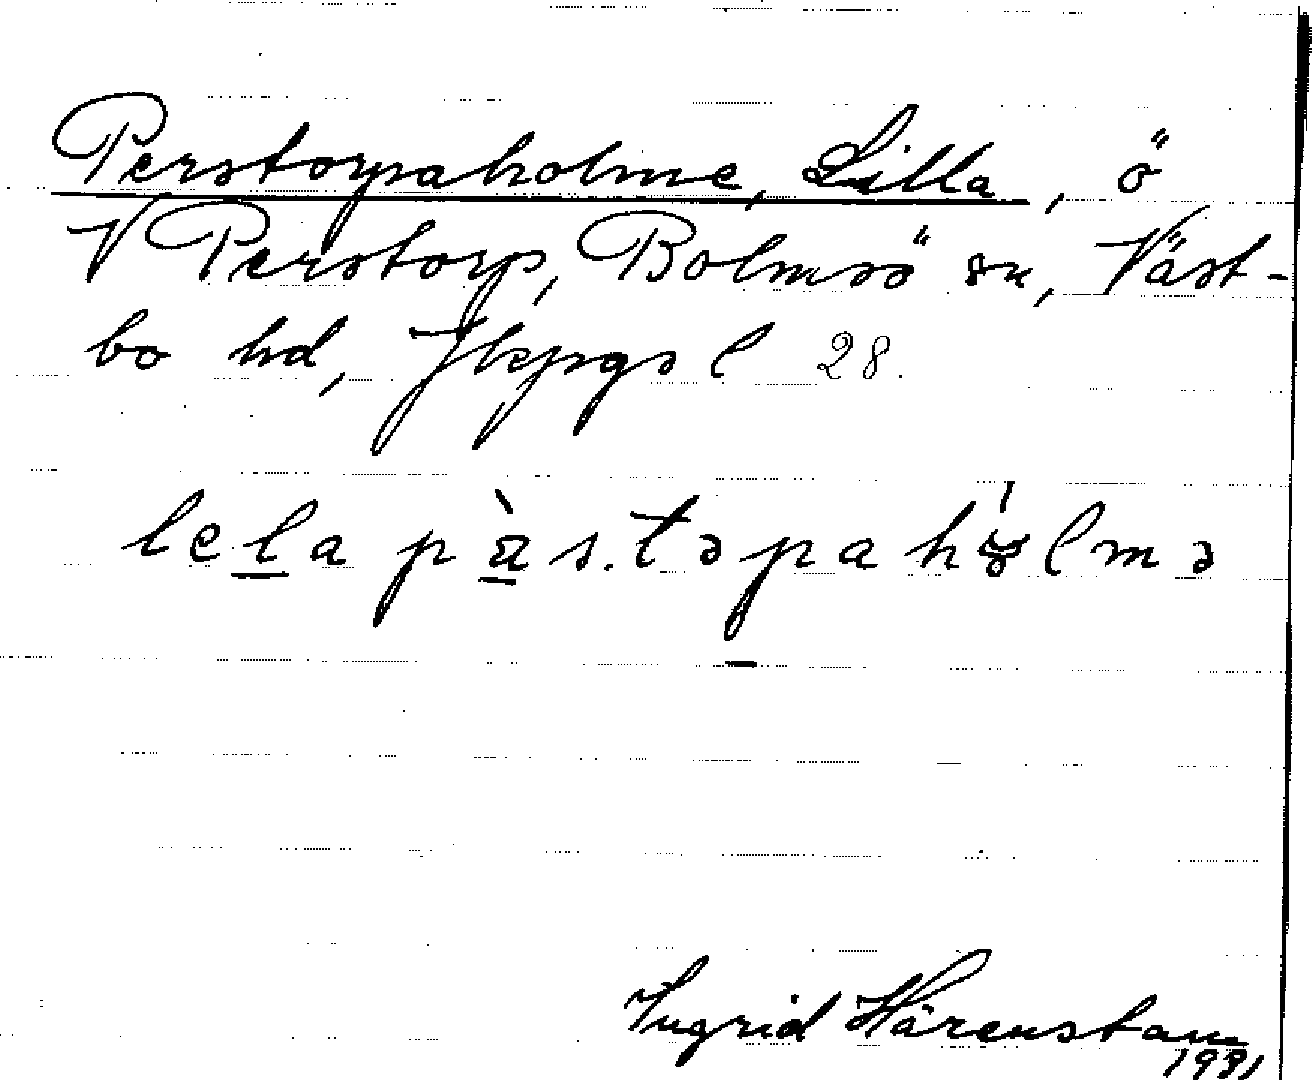 Perstorpaholme, Lilla, ö
V Perstorp, Bolmsö sn, Väst-
bo hd, Jkpgs l 28.
lela pàs.təpahólmə
Ingrid Härenstam
1931